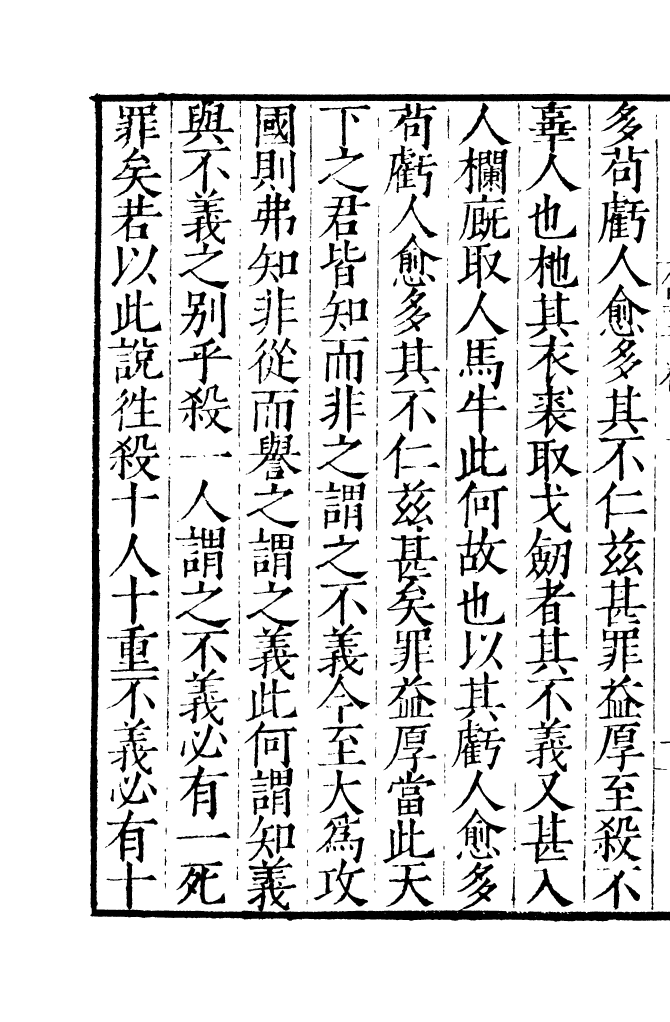 多茍虧人愈多其不仁兹甚罪益厚至殺不
辜人也杝其衣裘取戈劒者其不義又甚入
人欄廐取人馬牛此何故也以其虧人愈多
茍虧人愈多其不仁兹甚矣罪益厚當此天
下之君皆知而非之謂之不義今至大爲攻
國則弗知非從而譽之謂之義此何謂知義
與不義之别乎殺一人謂之不義必有一死
罪矣若以此說徃殺十人十重不義必有十